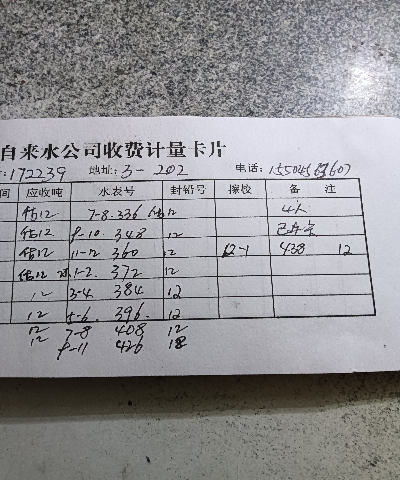 自来水公司收费计量卡片
:172239 地址:3-202 电话:
间 应收吨 水表号 封铅号 擦校 备注
估12 7-8. 336 12 4人
估12 9-10. 348 12
估12 11-12 360 12 12-1 438 12
估12 1-2. 372 12
12 3-4 384 12
12 5-6. 396. 12
12 7-8 408 12
12 9-11 426 18